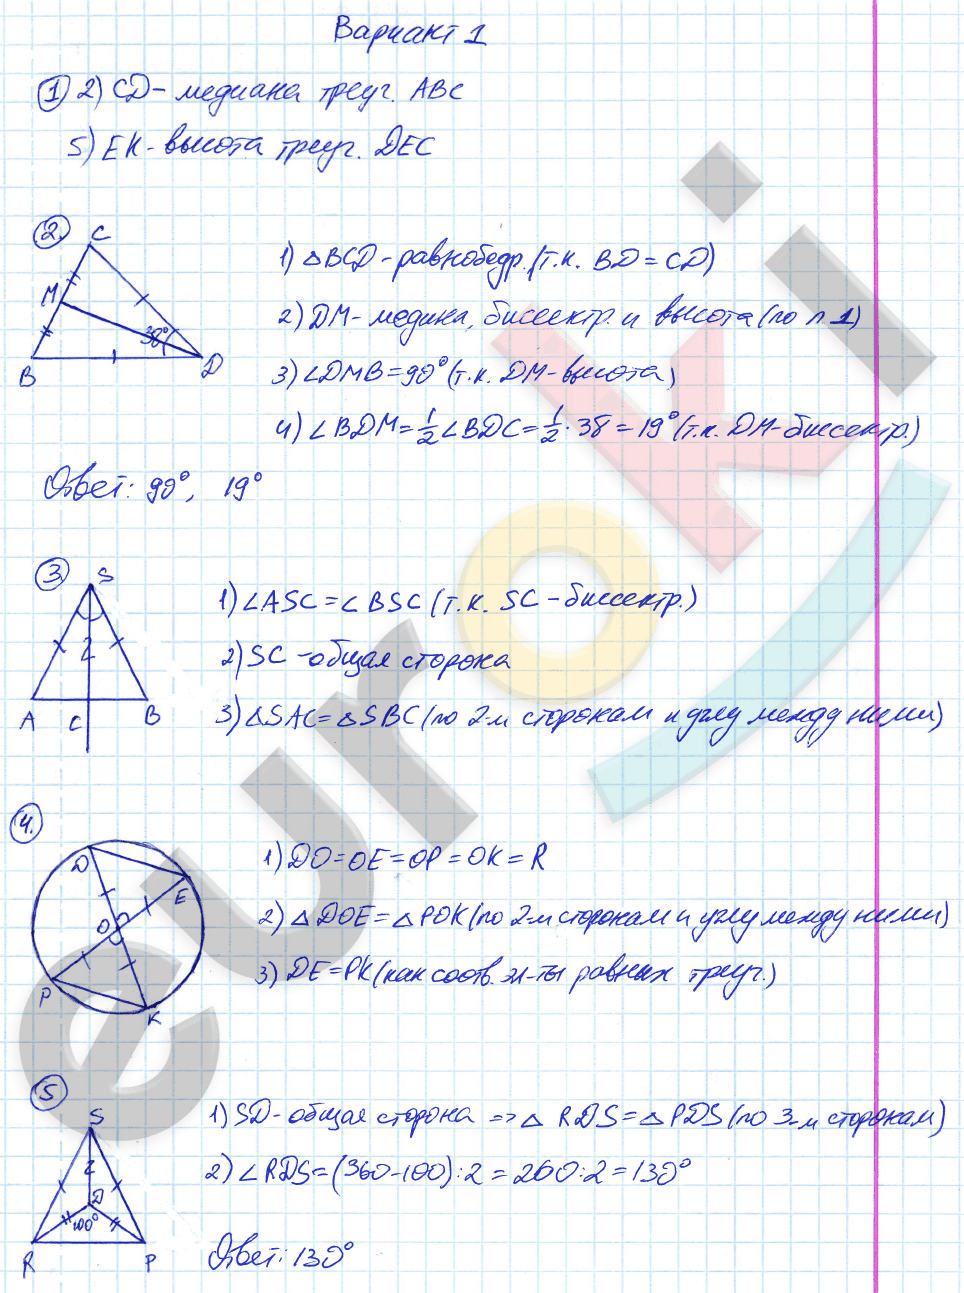 Вариант 1
1) 2) CD - медиана треуг. ABC
5) EK - высота треуг. DEC
2.
C
M
38°
B
D
1) △BCD - равнобедр. (т.к. BD = CD)
2) DM - медина, биссектр. и высота (по п 1)
3) ∠DMB = 90° (т.к. DM - высота)
4) ∠BDM = 1/2 ∠BDC = 1/2 · 38 = 19° (т.к. DM - биссектр.)
Ответ: 90°, 19°
3
S
A C B
1) ∠ASC = ∠BSC (т.к. SC - биссектр.)
2) SC - общая сторона
3) △SAC = △SBC (по 2-м сторонам и углу между ними)
4.
D
E
O
P
K
1) DO = OE = OP = OK = R
2) △DOE = △POK (по 2-м сторонам и углу между ними)
3) DE = PK (как соотв. эл-ты равных треуг.)
5
S
D
100°
R P
1) SD - общая сторона => △ RDS = △ PDS (по 3-м сторонам)
2) ∠RDS = (360 - 100) : 2 = 260 : 2 = 130°
Ответ: 130°
euroki